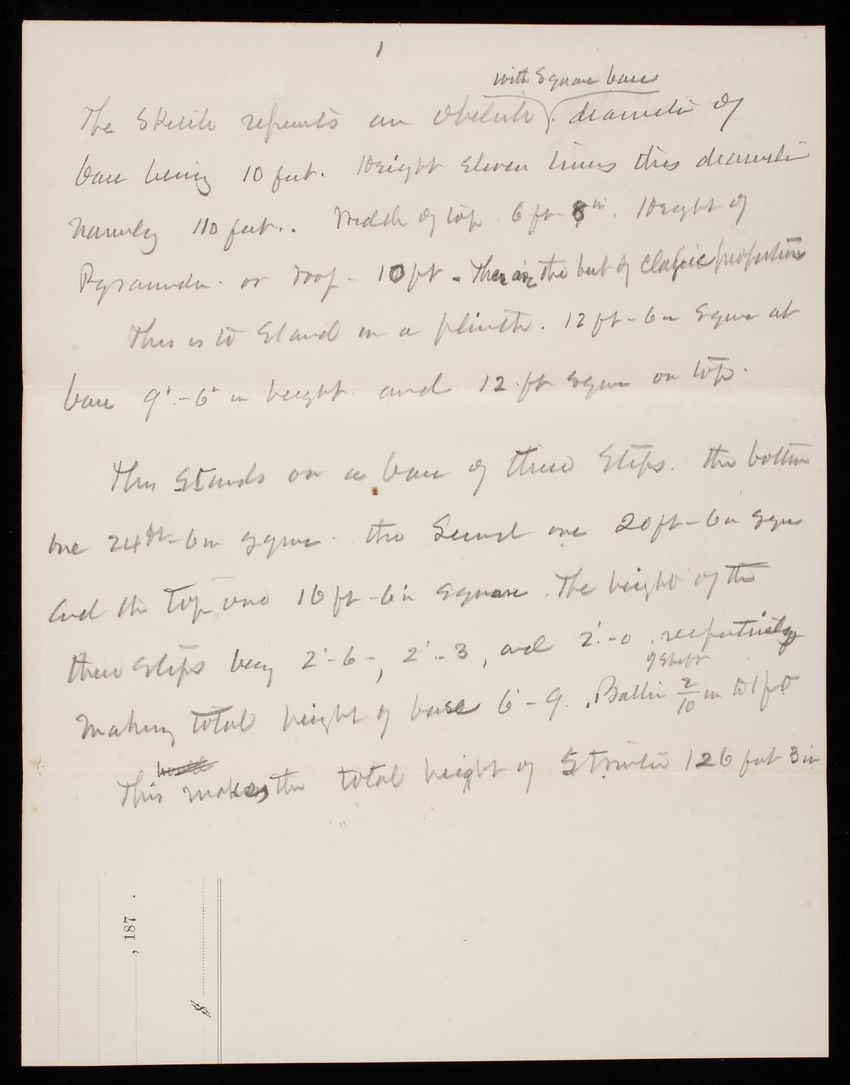 1
with Square base
The Sketch represents an Obelisk). diameter of
base being 10 feet. Height Eleven times this diameter
namely 110 feet.. Width of top 6 ft-8 in. Height of
Pyramidn. or roof - 10 ft - These are the best of Classic proportions
This is to Stand on a plinth. 12 ft-6 in Square at
base 9'-6" in height and 12 ft square on top.
This Stands on a base of three Steps. the bottom
one 24 ft-6 in square. the Second one 20 ft-6 in Square
and the top one 16 ft-6 in square. The height of the
three Steps being 2'-6-, 2'-3, and 2'-0. respectively
of Shaft
Making total height of base 6'-9. Batter 2/10 in to 1 ft
This makes the total height of Structure 126 feet 3 in
, 187 .
$